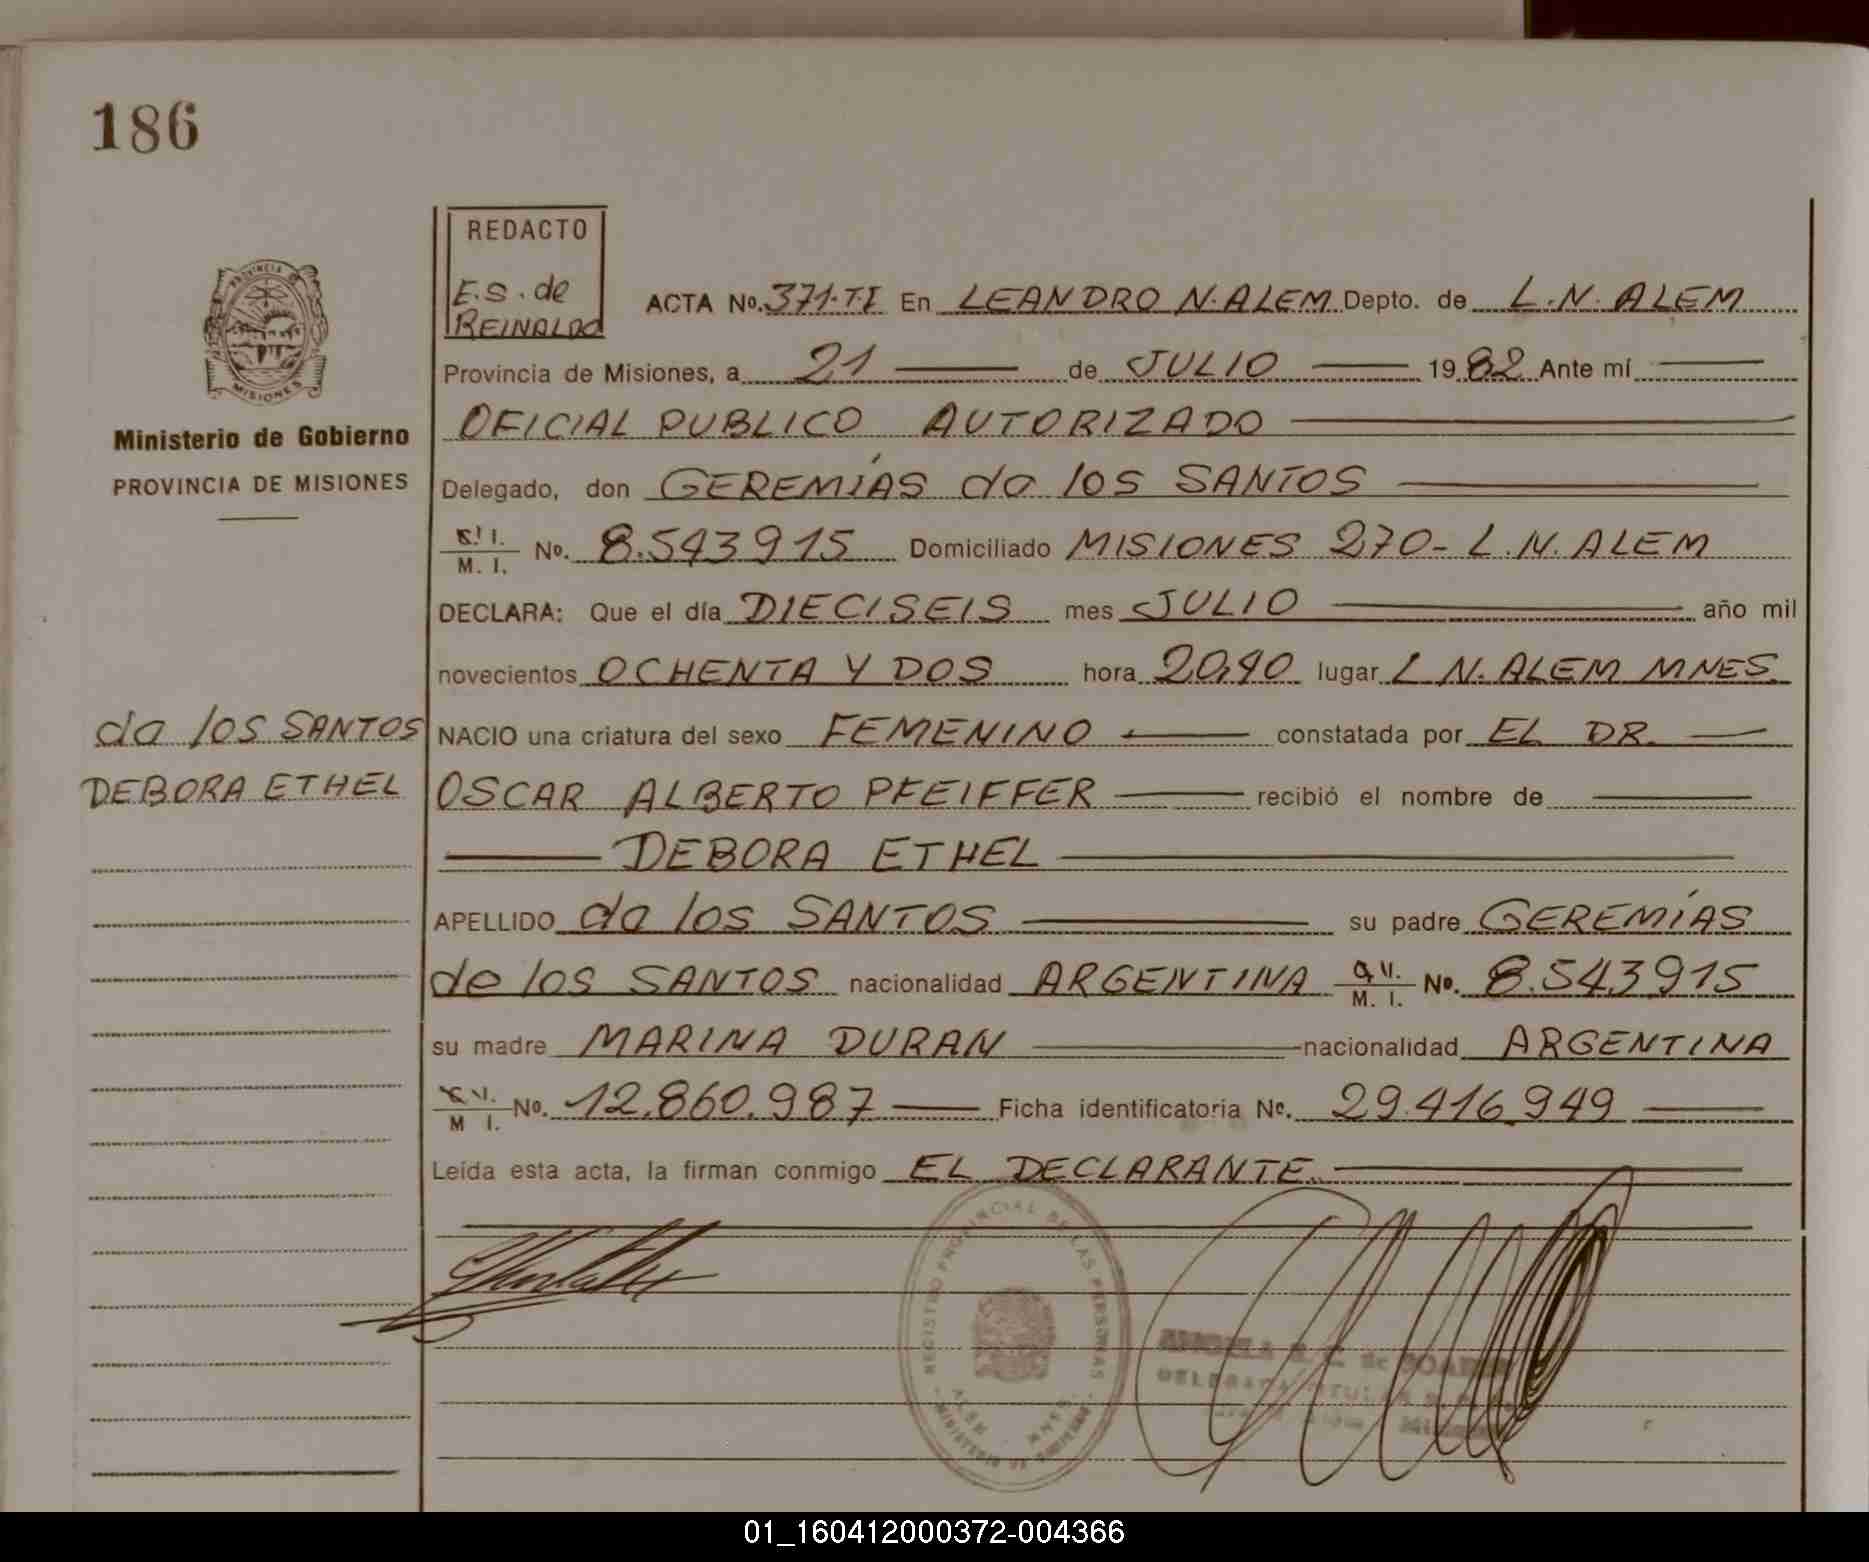 186
REDACTO
E.S. de
REINALDO
ACTA No. 371-T.I En LEANDRO N. ALEM Depto. de L.N. ALEM
Provincia de Misiones, a 21 de JULIO 1982 Ante mí
OFICIAL PUBLICO AUTORIZADO
Ministerio de Gobierno
PROVINCIA DE MISIONES
Delegado, don GEREMÍAS da los SANTOS
M. I. No. 8.543915 Domiciliado MISIONES 270- L.N. ALEM
DECLARA: Que el día DIECISEIS mes JULIO año mil
novecientos OCHENTA Y DOS hora 20,40 lugar L N. ALEM MNES.
da los SANTOS
DEBORA ETHEL
NACIO una criatura del sexo FEMENINO constatada por EL DR.
OSCAR ALBERTO PFEIFFER recibió el nombre de
DEBORA ETHEL
APELLIDO da los SANTOS su padre GEREMÍAS
de los SANTOS nacionalidad ARGENTINA M. I. No. 8.543.915
su madre MARINA DURAN nacionalidad ARGENTINA
M I. No. 12.860.987 Ficha identificatoria No. 29.416.949
Leída esta acta, la firman conmigo EL DECLARANTE
REGISTRO PROVINCIAL DE LAS PERSONAS
01_160412000372-004366